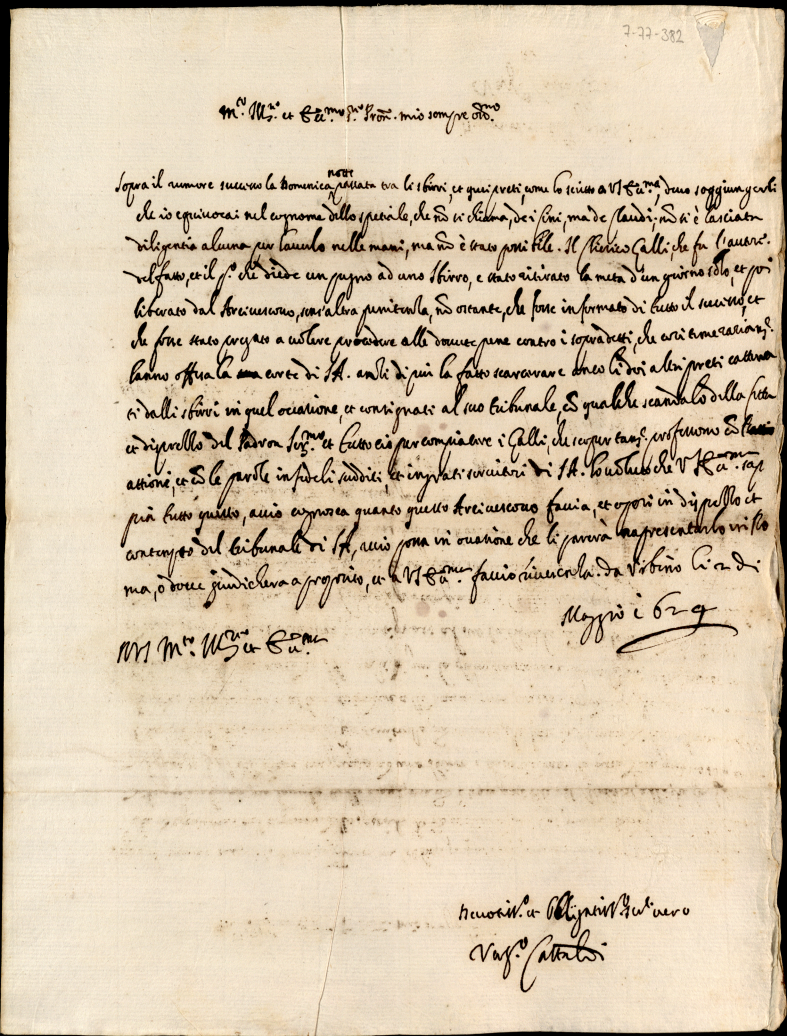 7-77-382
M.to Ill.re et Ecc.mo S.re Pron. mio sempre oss.mo
Sopra il rumore successo la Domenica notte passata tra li sbirri, et quei preti, come ho scritto a VS Ecc.ma, devo soggiungerli
che io equivocai nel cognome dello speciale, che nõ si chiama, dei fini, ma de Claudi; nõ si è lasciata
diligentia alcuna per haverlo nelle mani, ma nõ è stato possibile. Il Chierico Galli, che fu l'autore
del fatto, et il p.o che diede un pugno ad uno sbirro, e stato ritirato la metà d'un giorno solo, et poi
liberato dal Arcivescovo, senz'altra penitenza, nõ ostante, che fosse informato di tutto il successo, et
che fosse stato pregato a volere procedere alle dovute pene contro i sopradetti, che così temerariam.te
hanno offesa la corte di SA. anzi di più ha fatto scarcerare anco li doi altri preti cattura
ti dalli sbirri in quel occasione, et consignati al suo tribunale, cõ qualche scandalo della città
et disprezzo del Padron Ser.mo et tutto ciò per compiacere i Galli, che professono cõ
attioni, et cõ le parole infideli sudditi, et ingrati servitori di SA. ho voluto che VS Ecc.ma sap
pia tutto questo, acciò cognosca quanto questo Arcivescovo faccia, et operi in dispezzo et
contempto del tribunale di SA, acciò possa in occasione che li parerà rapresentarlo
ma, o dove giudicherà a proposito, et a VS Ecc.ma faccio riverenza. da Urbino li 2 di
Maggio 1629
D VS M.to Ill.re et Ecc.ma
Devotiss.o et Obligatiss.o se.r vero
Cattaldi